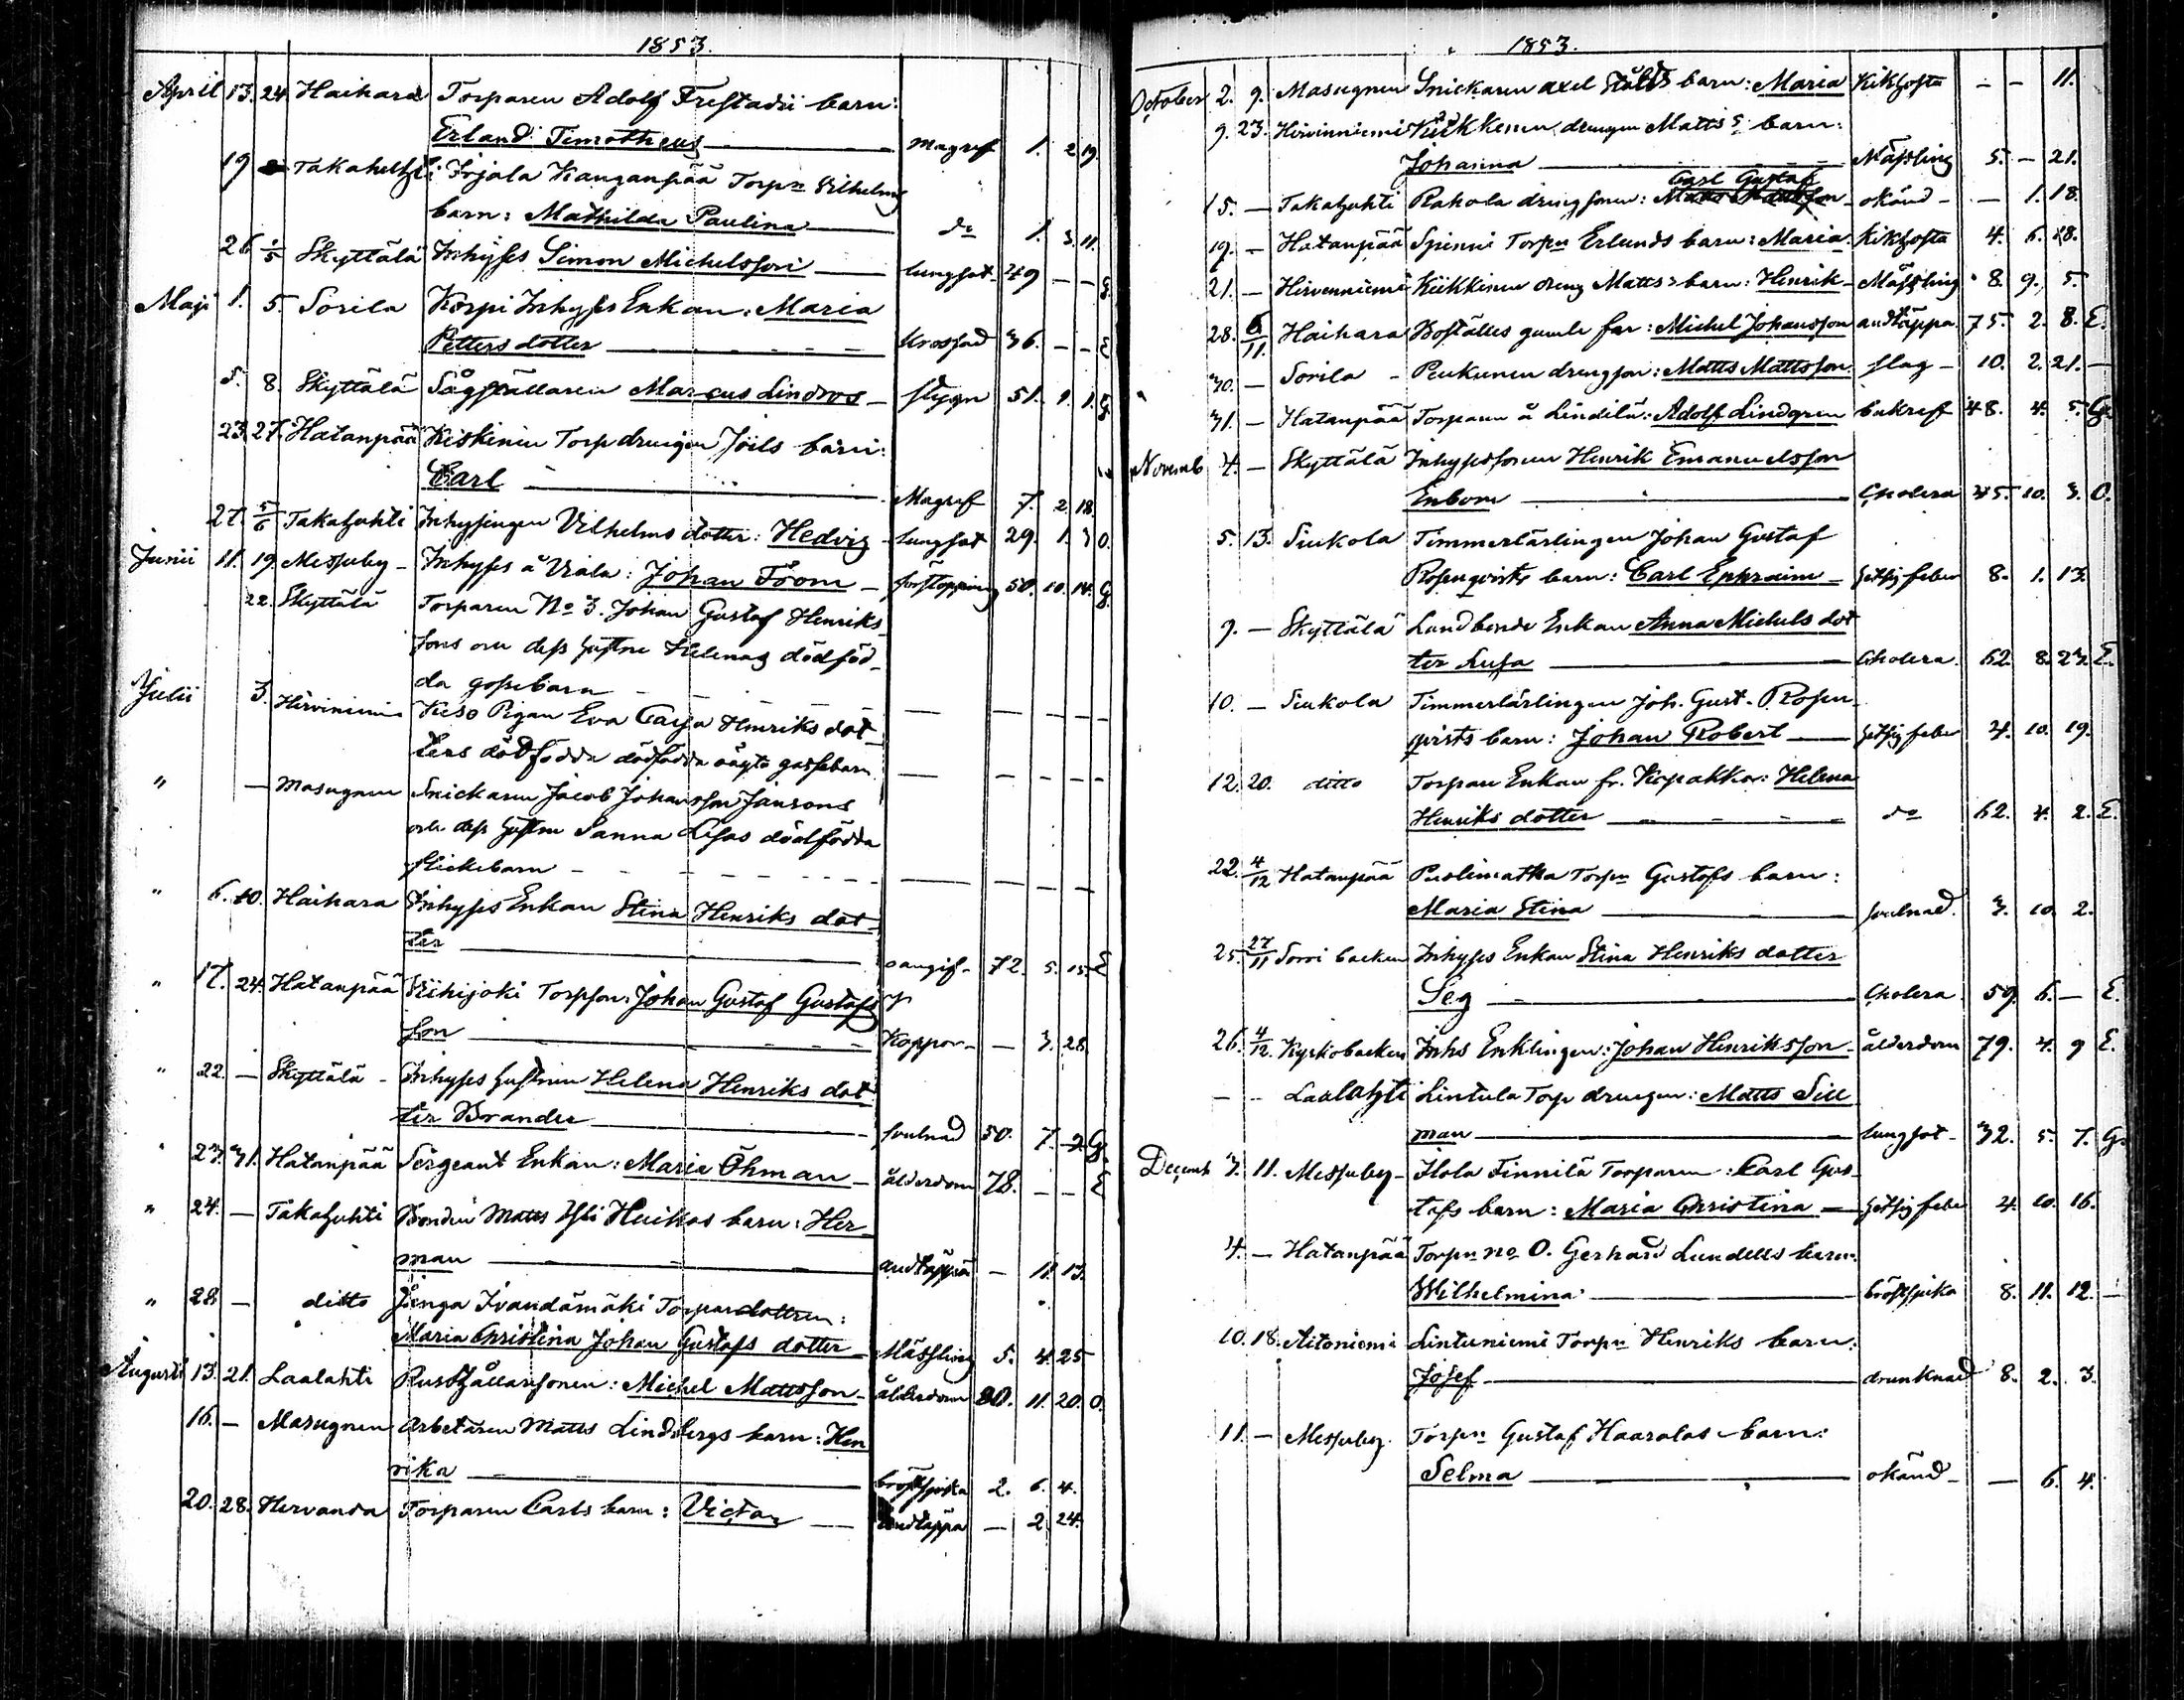 1853.
April 13. 24 Haihara Torparen Adolf Frestadii barn:
Erland Timotheus magref 1. 2 19.
19 Takahuhti Irjala Kanganpää Torpn Vilhelms
barn: Mathilda Paulina do 1. 3. 11.
26 1/5 Skyttälä Inhyses Simon Michelsson lungsot 49 — — G.
Maji 1. 5. Sorila Korpi Inhyses Enkan: Maria
Petters dotter 36. — — E
5. 8. Skyttälä Marcus Lindroos stygn 51. 1. G
23. 27. Hatanpää Kiskinin Torpdrengen Joels barn:
Carl Magref 7. 2. 18.
27. 5/6 Takahuhti Inhysingen Vilhelms dotter: Hedvig lungsot 29. 1. 3 O.
Junii 11. 19. Messuby Inhyses å Viala: Johan Fröom förstoppning 50. 10. 14. G
22. Skyttälä Torparen No 3. Johan Gustaf Henriks
sons och dess hustru Helenas dödföd
da gossebarn
Julii 3. Hirviniemi Keso Pigan Eva Caja Henriks dot
ters dödfödda dödfödda oägta gossebarn
" — Masugnen Snickaren Jacob Johansson Jansons
och dess hustru Sanna Lisas dödfödda
flickebarn
" 6. 10. Haihara Inhyses Enkan Stina Henriks dot
ter oangif 72. 5. 15. E
" 17. 24. Hatanpää Kiihijoki Torpson: Johan Gustaf Gustafs
son Koppor — 3. 28.
" 22. — Skyttälä Inhyses hustrun Helena Henriks dot
ter Brander svulnad 50. 7. 2. G
" 23. 31. Hatanpää Sergeant Enkan: Maria Öhman ålderdom 78. — — E
" 24. — Takahuhti Bonden Matts Yli Huikas barn: Her
man andtäppa — 11. 13.
" 28. — ditto Ivandämäki Torpardottren:
Maria Christina Johan Gustafs dotter Mässling 5. 4. 25
Augusti 13. 21. Laalahti Rusthållarsonen: Michel Mattsson ålderdom 80. 11. 20. O.
16. — Masugnen Arbetaren Matts Lindbergs barn: Hen
rika bröstsjuka 2. 6. 4.
20. 28. Hervanda Torparen Carls barn: Victor andtäppa — 2. 24.
1853.
October 2. 9. Masugnen Snickaren Axel barn: Maria Kikhosta — — 11.
9. 23. Hirvinniemi Kiikkinen drengen Matts's barn:
Johanna Mässling 5. — 21.
Carl Gustaf
15. — Takahuhti Rahola drengsonen: okänd — 1. 18.
19. — Hatanpää Spinni Torpn Erlunds barn: Maria Kikhosta 4. 6. 28.
21. — Hirvenniemi Kiikkinen dreng Matts's barn: Henrik Mässling 8. 9. 5.
28. 6/11. Haihara Boställes gamle far: Michel Johansson andtäppa 75. 2. 8. E.
30. — Sorila Penkunen drengson: Matts Mattsson slag 10. 2. 21. —
31. — Hatanpää Torparen å Lindilä: Adolf Lindgren bukref 48. 4. 5. G.
Novemb 4. — Skyttälä Inhysessonen Henrik Emanuelsson
Enbom Cholera 45. 10. 3. O.
5. 13. Siukola Timmerlärlingen Johan Gustaf
Rosenqvists barn: Carl Ephraim hetsig feber 8. 1. 13.
9. — Skyttälä Landbonde Enkan Anna Michels dot
ter Cholera. 62. 8. 23. E.
10. — Siukola Timmerlärlingen Joh. Gust. Rosen
qvists barn: Johan Robert hetsig feber 4. 10. 19.
12. 20. ditto Torpare Enkan fr. Kopakka: Helena
Henriks dotter do 62. 4. 2. E.
22. 4/12 Hatanpää Puolimatka Torpn Gustafs barn:
Maria Stina svulnad. 3. 10. 2.
25. 27/11 Sorri backen Inhyses Enkan Stina Henriks dotter
Seg Cholera 59. 6. — E.
26. 4/12. Kyrkobacken Inhs Enklingen: Johan Henriksson ålderdom 79. 4. 9 E.
— — Laalahti Lintula Torp drengen: Matts Sill
man lungsot 32. 5. 7. G.
Decemb 3. 11. Messuby Ilola Finnilä Torparen: Carl Gus
tafs barn: Maria Christina hetsig feber 4. 10. 16.
4. — Hatanpää Torpn no O. Gerhard Lundells barn:
Wilhelmina bröstsjuka 8. 11. 12. —
10. 18. Aitoniemi Lintuniemi Torpn Henriks barn:
Josef drunknad 8. 2. 3.
11. — Messuby. Torpn Gustaf Haaralas barn:
Selma okänd — 6. 4.